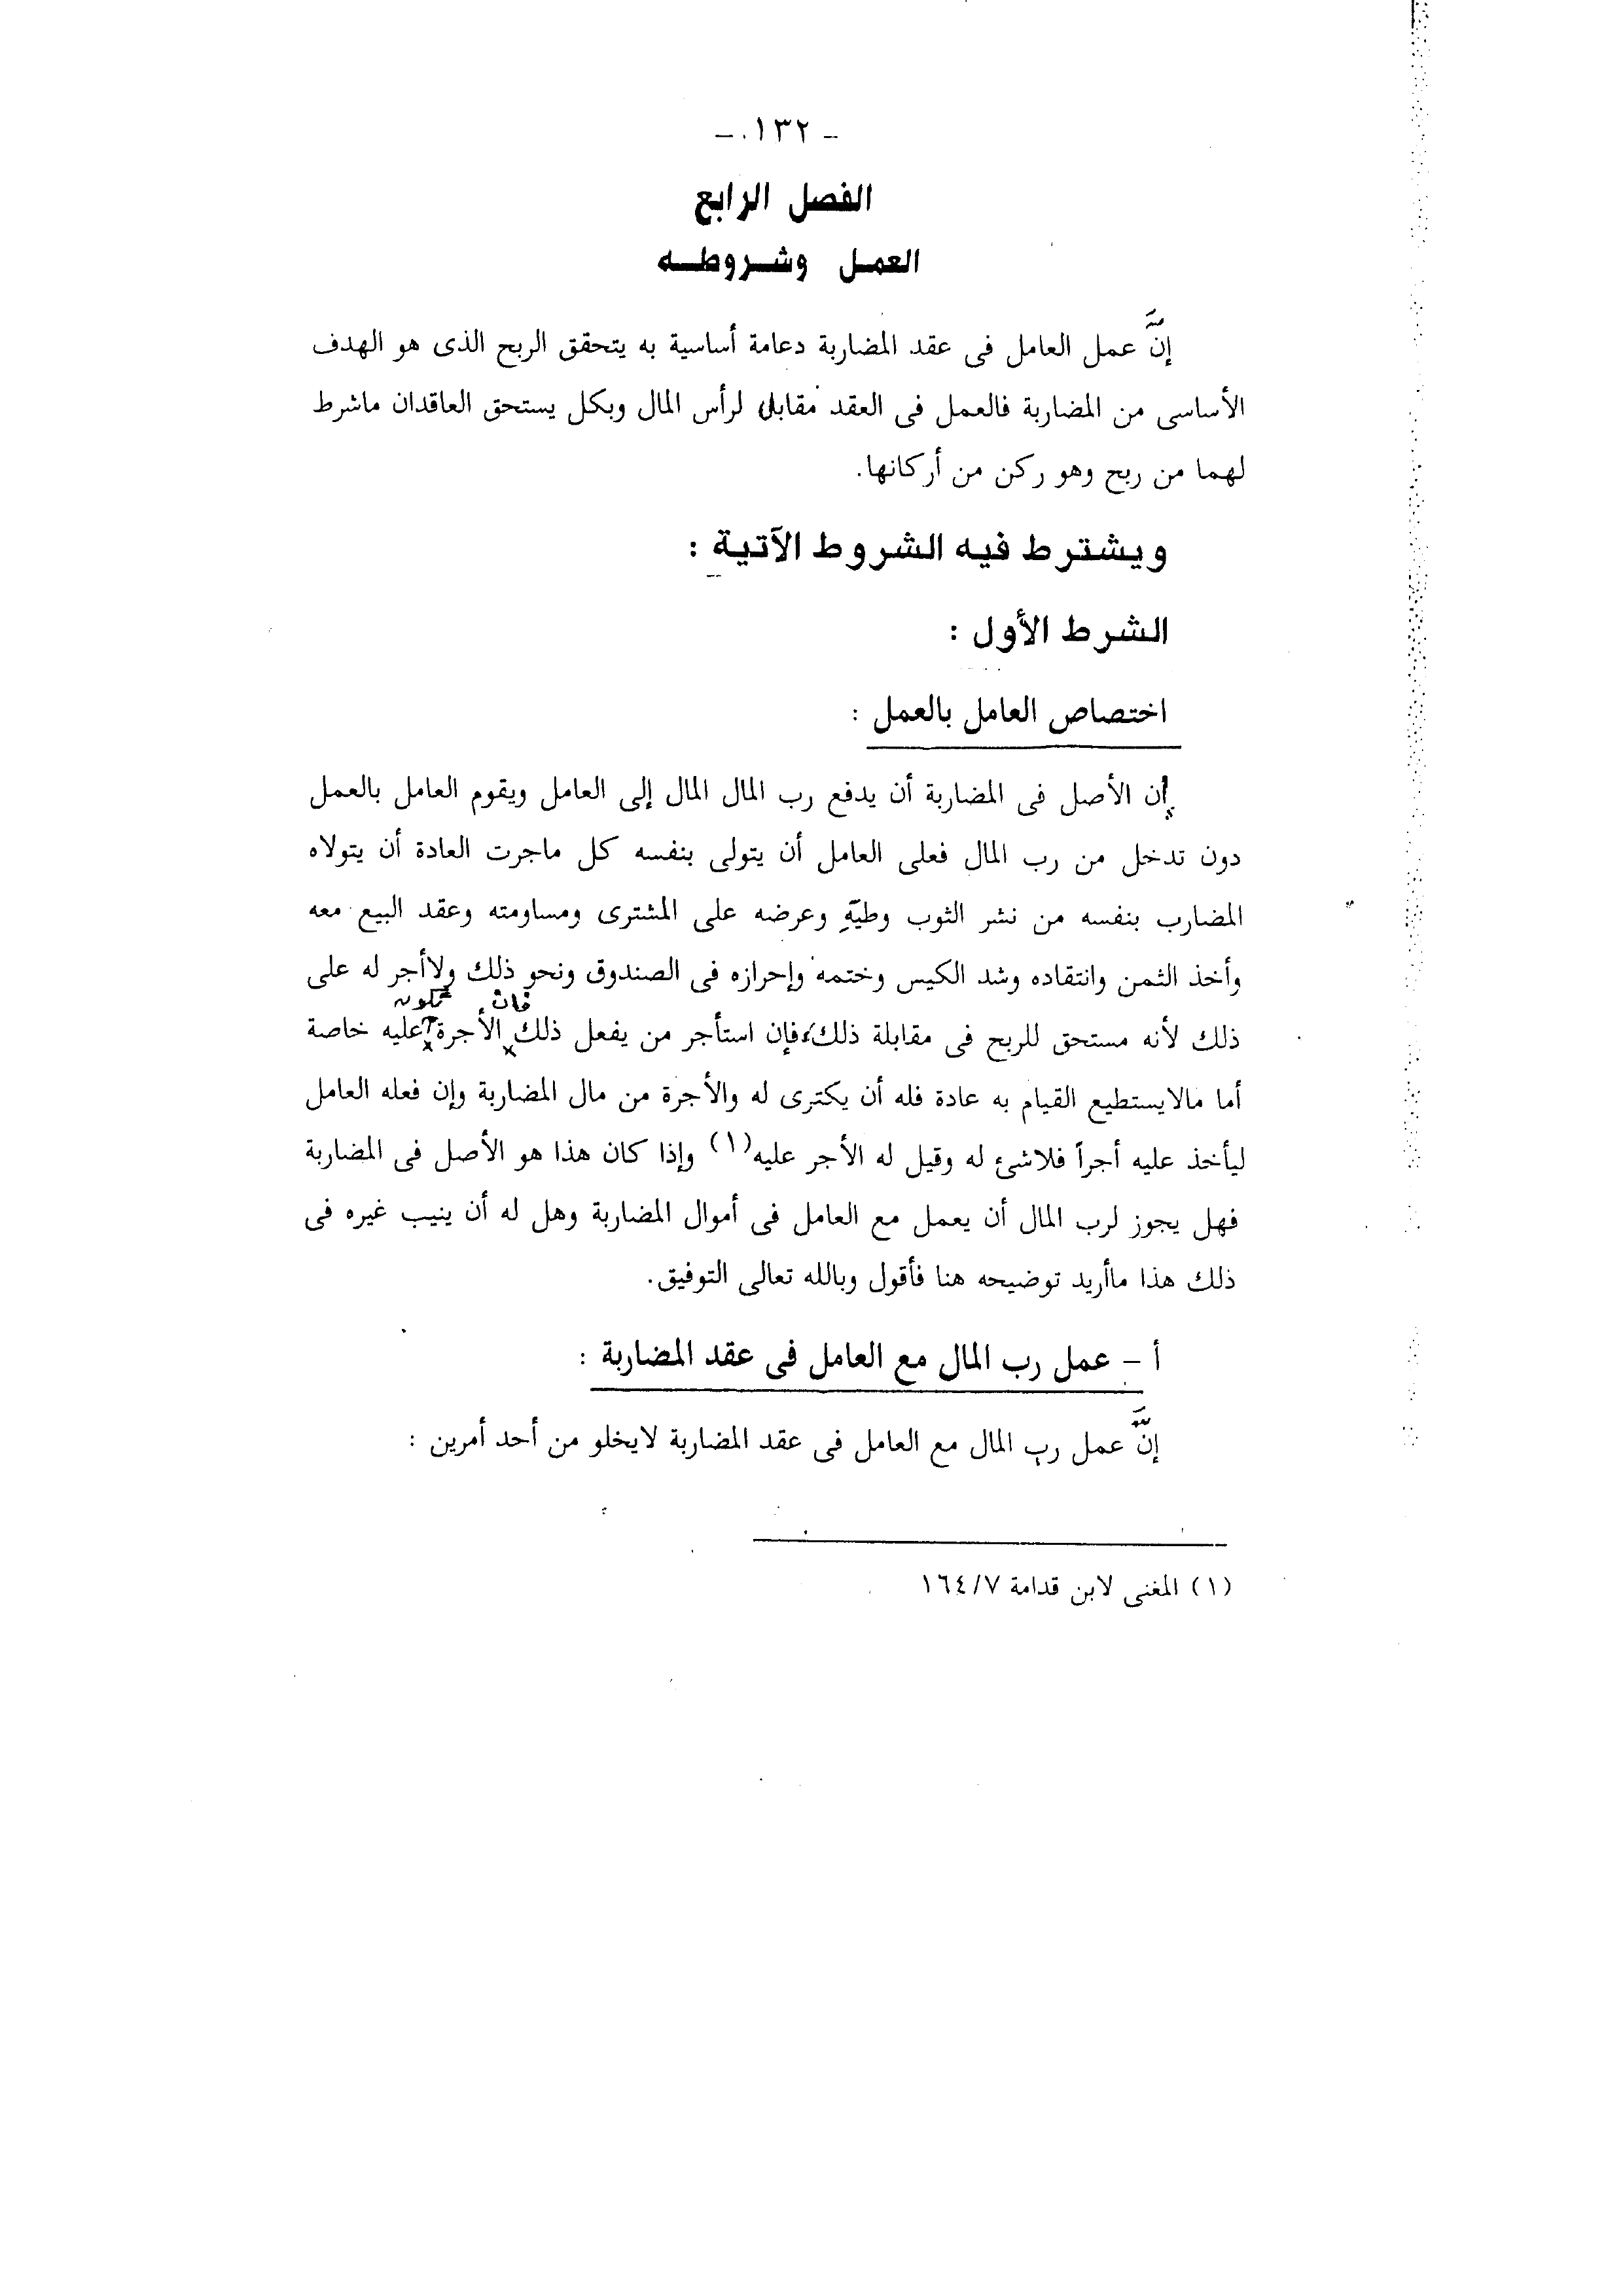 - ١٣٢ -
الفصل الرابع
العمل وشروطه
إنَّ عمل العامل فى عقد المضاربة دعامة أساسية به يتحقق الربح الذى هو الهدف
الأساسى من المضاربة فالعمل فى العقد مقابل لرأس المال وبكل يستحق العاقدان ماشرط
لهما من ربح وهو ركن من أركانها.
ويشترط فيه الشروط الآتية :
الشرط الأول :
اختصاص العامل بالعمل :
إن الأصل فى المضاربة أن يدفع رب المال المال إلى العامل ويقوم العامل بالعمل
دون تدخل من رب المال فعلى العامل أن يتولى بنفسه كل ماجرت العادة أن يتولاه
المضارب بنفسه من نشر الثوب وطيّهِ وعرضه على المشترى ومساومته وعقد البيع معه
وأخذ الثمن وانتقاده وشد الكيس وختمه وإحرازه فى الصندوق ونحو ذلك ولاأجر له على
فان تكون
ذلك لأنه مستحق للربح فى مقابلة ذلك، فإن استأجر من يفعل ذلك الأجرة عليه خاصة
أما مالايستطيع القيام به عادة فله أن يكترى له والأجرة من مال المضاربة وإن فعله العامل
ليأخذ عليه أجراً فلاشئ له وقيل له الأجر عليه(١) وإذا كان هذا هو الأصل فى المضاربة
فهل يجوز لرب المال أن يعمل مع العامل فى أموال المضاربة وهل له أن ينيب غيره فى
ذلك هذا ماأريد توضيحه هنا فأقول وبالله تعالى التوفيق.
أ – عمل رب المال مع العامل فى عقد المضاربة :
إنَّ عمل رب المال مع العامل فى عقد المضاربة لايخلو من أحد أمرين :
(١) المغنى لابن قدامة ١٦٤/٧